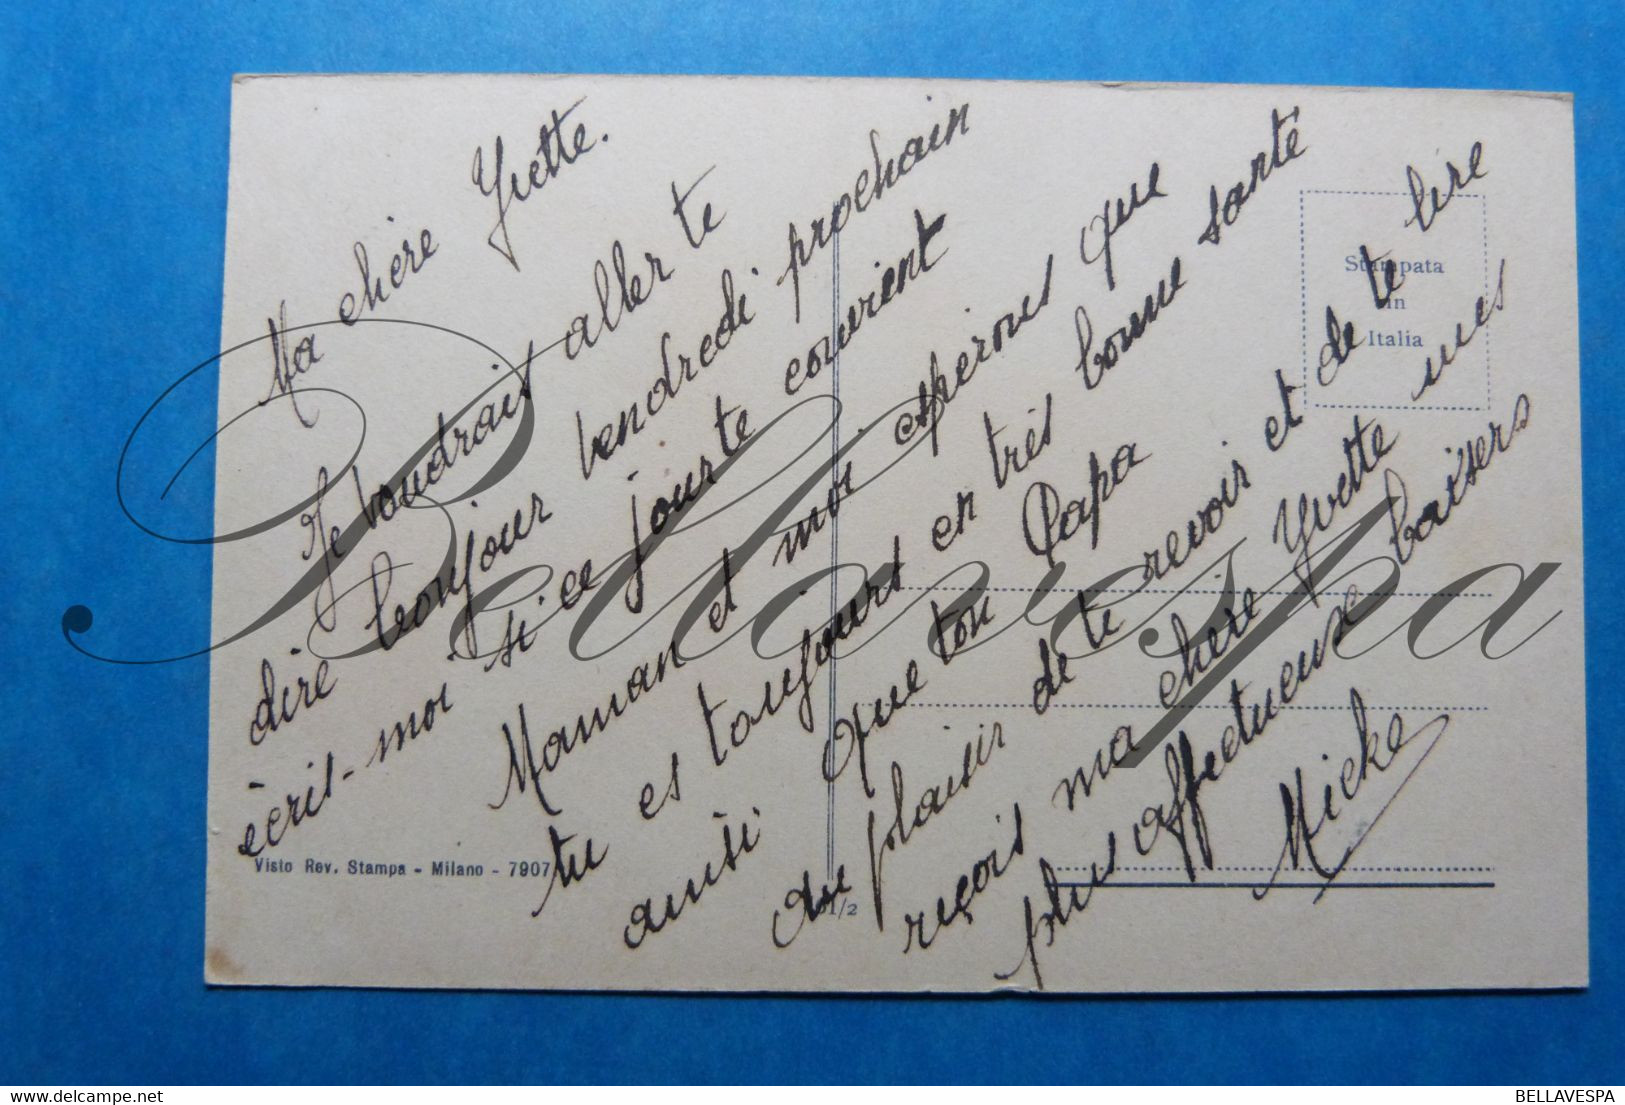 Ma chère Yvette.
Je voudrais aller te
dire bonjour vendredi prochain
écris-moi si ce jour te convient
Maman et moi espérons que
tu es toujours en très bonne santé
ainsi que ton Papa
au plaisir de te revoir et de te lire
reçois ma chère Yvette mes
plus affectueux baisers
Micke
Stampata
in
Italia
Visto Rev. Stampa - Milano - 7907
1/2
Bellavespa
BELLAVESPA